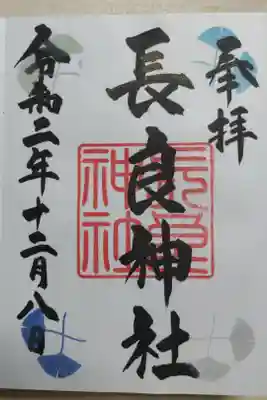 奉拝
長良神社
長良神社
令和二年十二月八日